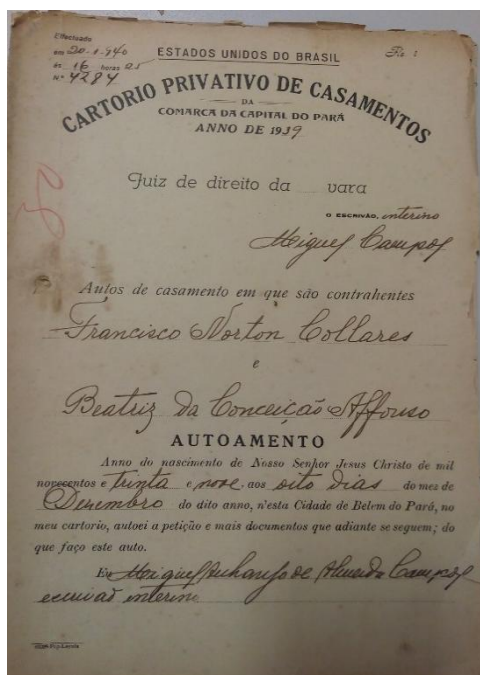 Effectuado
em 20-1-940
ás 16 horas 25
Nº 4284
ESTADOS UNIDOS DO BRASIL
Fls. 1
CARTORIO PRIVATIVO DE CASAMENTOS
DA
COMARCA DA CAPITAL DO PARÁ
ANNO DE 1939
Juiz de direito da vara
O ESCRIVÃO, interino
Miguel Campos
Autos de casamento em que são contrahentes
Francisco Norton Collares
e
Beatriz da Conceição Affonso
AUTOAMENTO
Anno do nascimento de Nosso Senhor Jesus Christo de mil
novecentos e trinta e nove aos oito dias do mez de
Dezembro do dito anno, n'esta Cidade de Belem do Pará, no
meu cartorio, autoei a petição e mais documentos que adiante se seguem; do
que faço este auto.
Eu Miguel Archanjo de Almeida Campos
escrivão interino